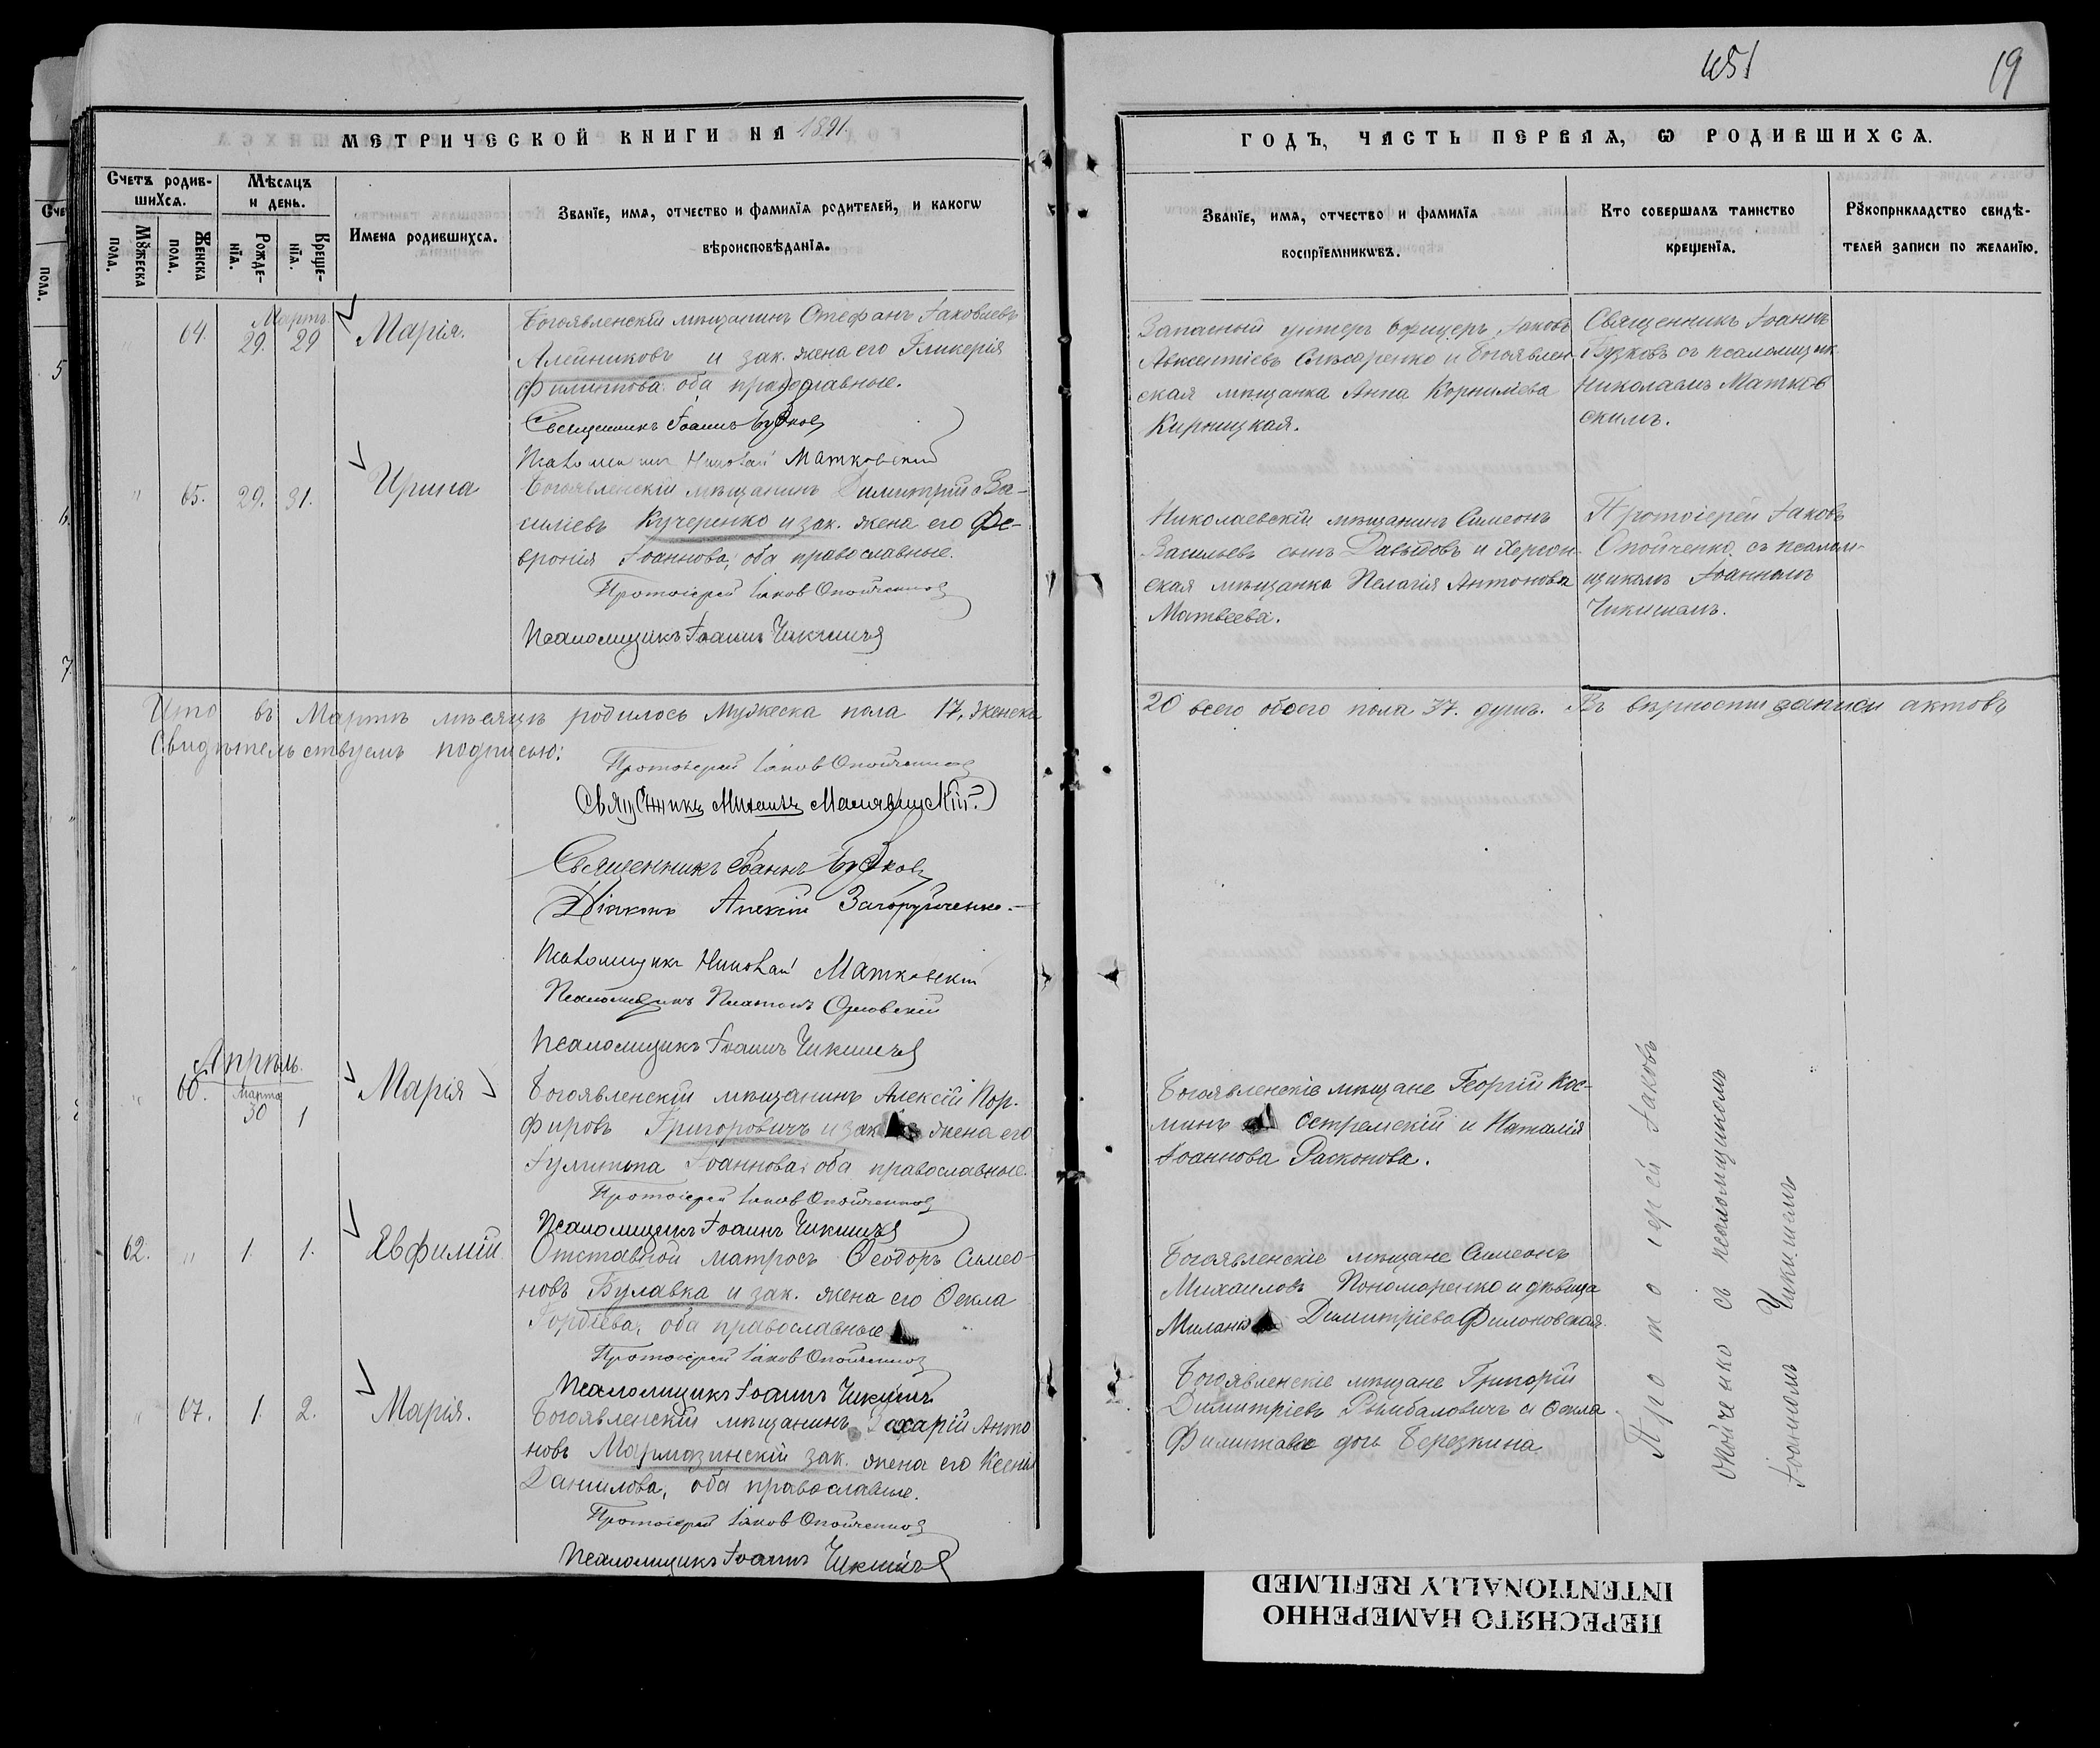 451
19
МЕТРИЧЕСКОЙ КНИГИ НА 1891.
ГОДЪ, ЧАСТЬ ПЕРВАЯ, Ѡ РОДИВШИХСЯ.
Счетъ родив-
шихся.
Мꙋжеска пола.
Женска пола.
Мѣсяцъ
и день.
Рожде-
нїя.
Креще-
нїя.
Имена родившихся.
Званїе, имя, отчество и фамилїя родителей, и какогѡ
вѣроисповѣданїя.
Званїе, имя, отчество и фамилїя
воспрїемникѡвъ.
Кто совершалъ таинство
крещенїя.
Рꙋкоприкладство свидѣ-
телей записи по желанїю.
" 64. Мартъ.
29. 29
Марія.
Богоявленскій мѣщанинъ Стефанъ Іаковлевъ
Алейниковъ и зак. жена его Гликерія
Филиппова, оба православные.
Священникъ Іоаннъ Будковъ
Псаломщикъ Николай Матковскій
Запасный унтеръ офицеръ Іаковъ
Авксентіевъ Слюсаренко и Богоявлен-
ская мѣщанка Анна Корнилїева
Кирницкая.
Священникъ Іоаннъ
Будковъ съ псаломщик.
Николаемъ Матков
скимъ.
" 65. 29. 31.
Ирина
Богоявленскій мѣщанинъ Димитрій Ва-
силіевъ Кучеренко и зак. жена его Фе-
вронія Іоаннова, оба православные.
Протоіерей Іаковъ Опойченко
Псаломщикъ Іоаннъ Чикишъ
Николаевскій мѣщанинъ Симеонъ
Васильевъ сынъ Давыдовъ и Херсон-
ская мѣщанка Пелагія Антонова
Матвеева.
Протоіерей Іаковъ
Опойченко съ псалом-
щикомъ Іоанномъ
Чикишомъ.
Итого въ Мартѣ мѣсяцѣ родилось Мужеска пола 17, женска
20 всего обоего пола 37. душъ. Въ вѣрности записи актовъ
Свидѣтельствуемъ подписью:
Протоіерей Іаковъ Опойченко
Священникъ Михаилъ
Священникъ Іоаннъ Будковъ
Діаконъ Алексій Загоруйченко.
Псаломщикъ Николай Матковскій
Псаломщикъ Платонъ Орловскій
Псаломщикъ Іоаннъ Чикишъ
Апрѣль.
" 66. Марта
30 1
Марія
Богоявленскій мѣщанинъ Алексій Пор-
фировъ Григоровичъ и зак. жена его
Іулиттa Іоаннова, оба православные.
Протоіерей Іаковъ Опойченко
Псаломщикъ Іоаннъ Чикишъ
Богоявленскіе мѣщане Георгій Кос-
минъ Остремскій и Наталія
Іоаннова Расконова.
62. " 1. 1.
Евфимій
Отставной матросъ Ѳеодоръ Симео-
новъ Булавка и зак. жена его Ѳекла
Гордіева, оба православные
Протоіерей Іаковъ Опойченко
Псаломщикъ Іоаннъ Чикишъ
Богоявленскіе мѣщане Симеонъ
Михаиловъ Пономаренко и дѣвица
Димитріева Филоновская.
" 67. 1. 2.
Марія.
Богоявленскій мѣщанинъ Захарій Анто
новъ Мармазинскій зак. жена его Ксенія
Данилова, оба православные.
Протоіерей Іаковъ Опойченко
Псаломщикъ Іоаннъ Чикишъ
Богоявленскіе мѣщане Григорій
Димитріевъ Рымбаловичъ и Ѳекла
Филиппова дочь Березкина.
Протоіерей Іаковъ
Опойченко съ псаломщикомъ
Іоанномъ Чикишомъ
ПЕРЕСНЯТО НАМЕРЕННО
INTENTIONALLY REFILMED